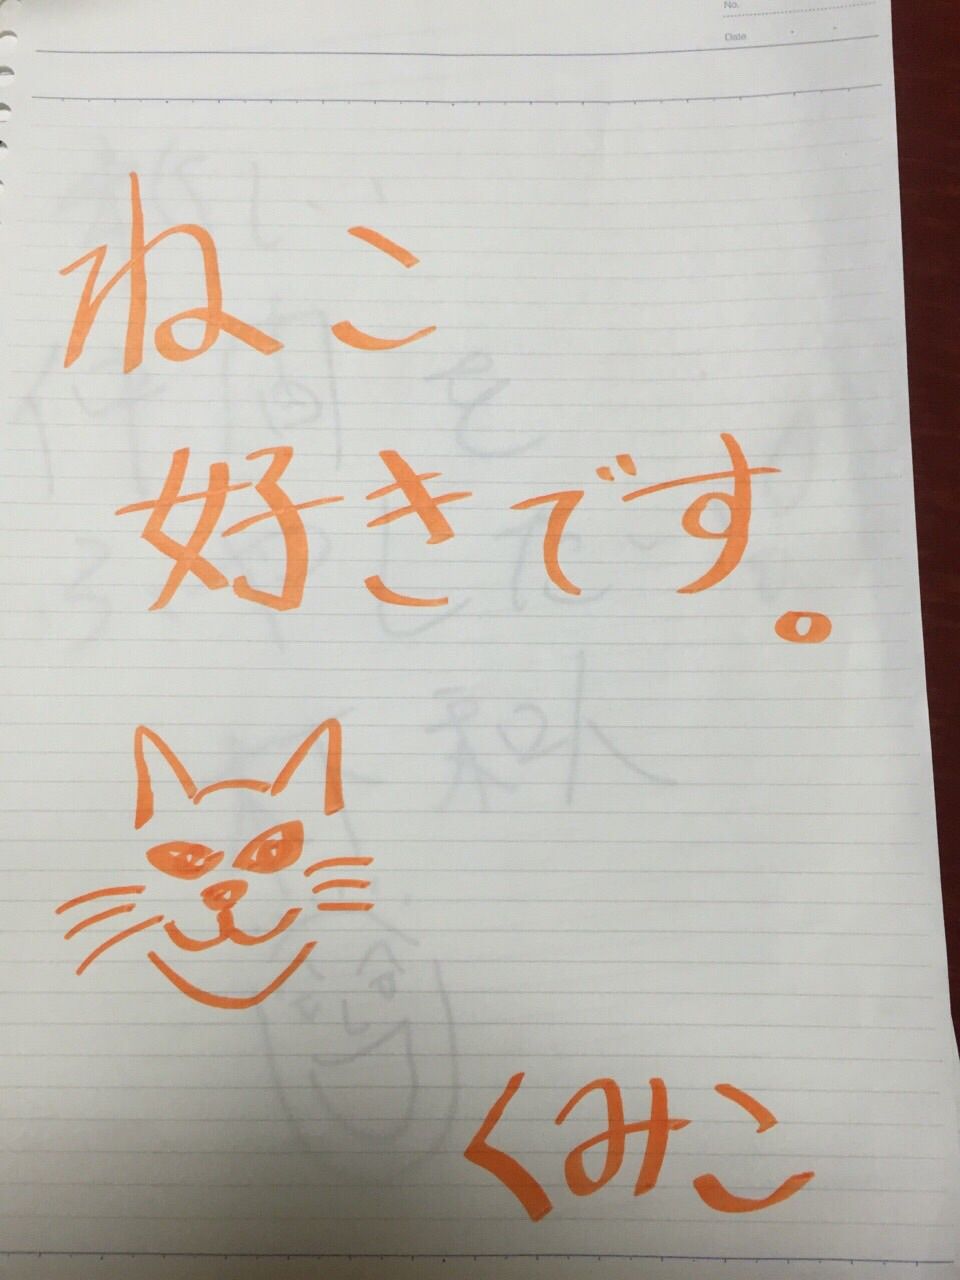 No.
Date
ねこ
好きです。
くみこ